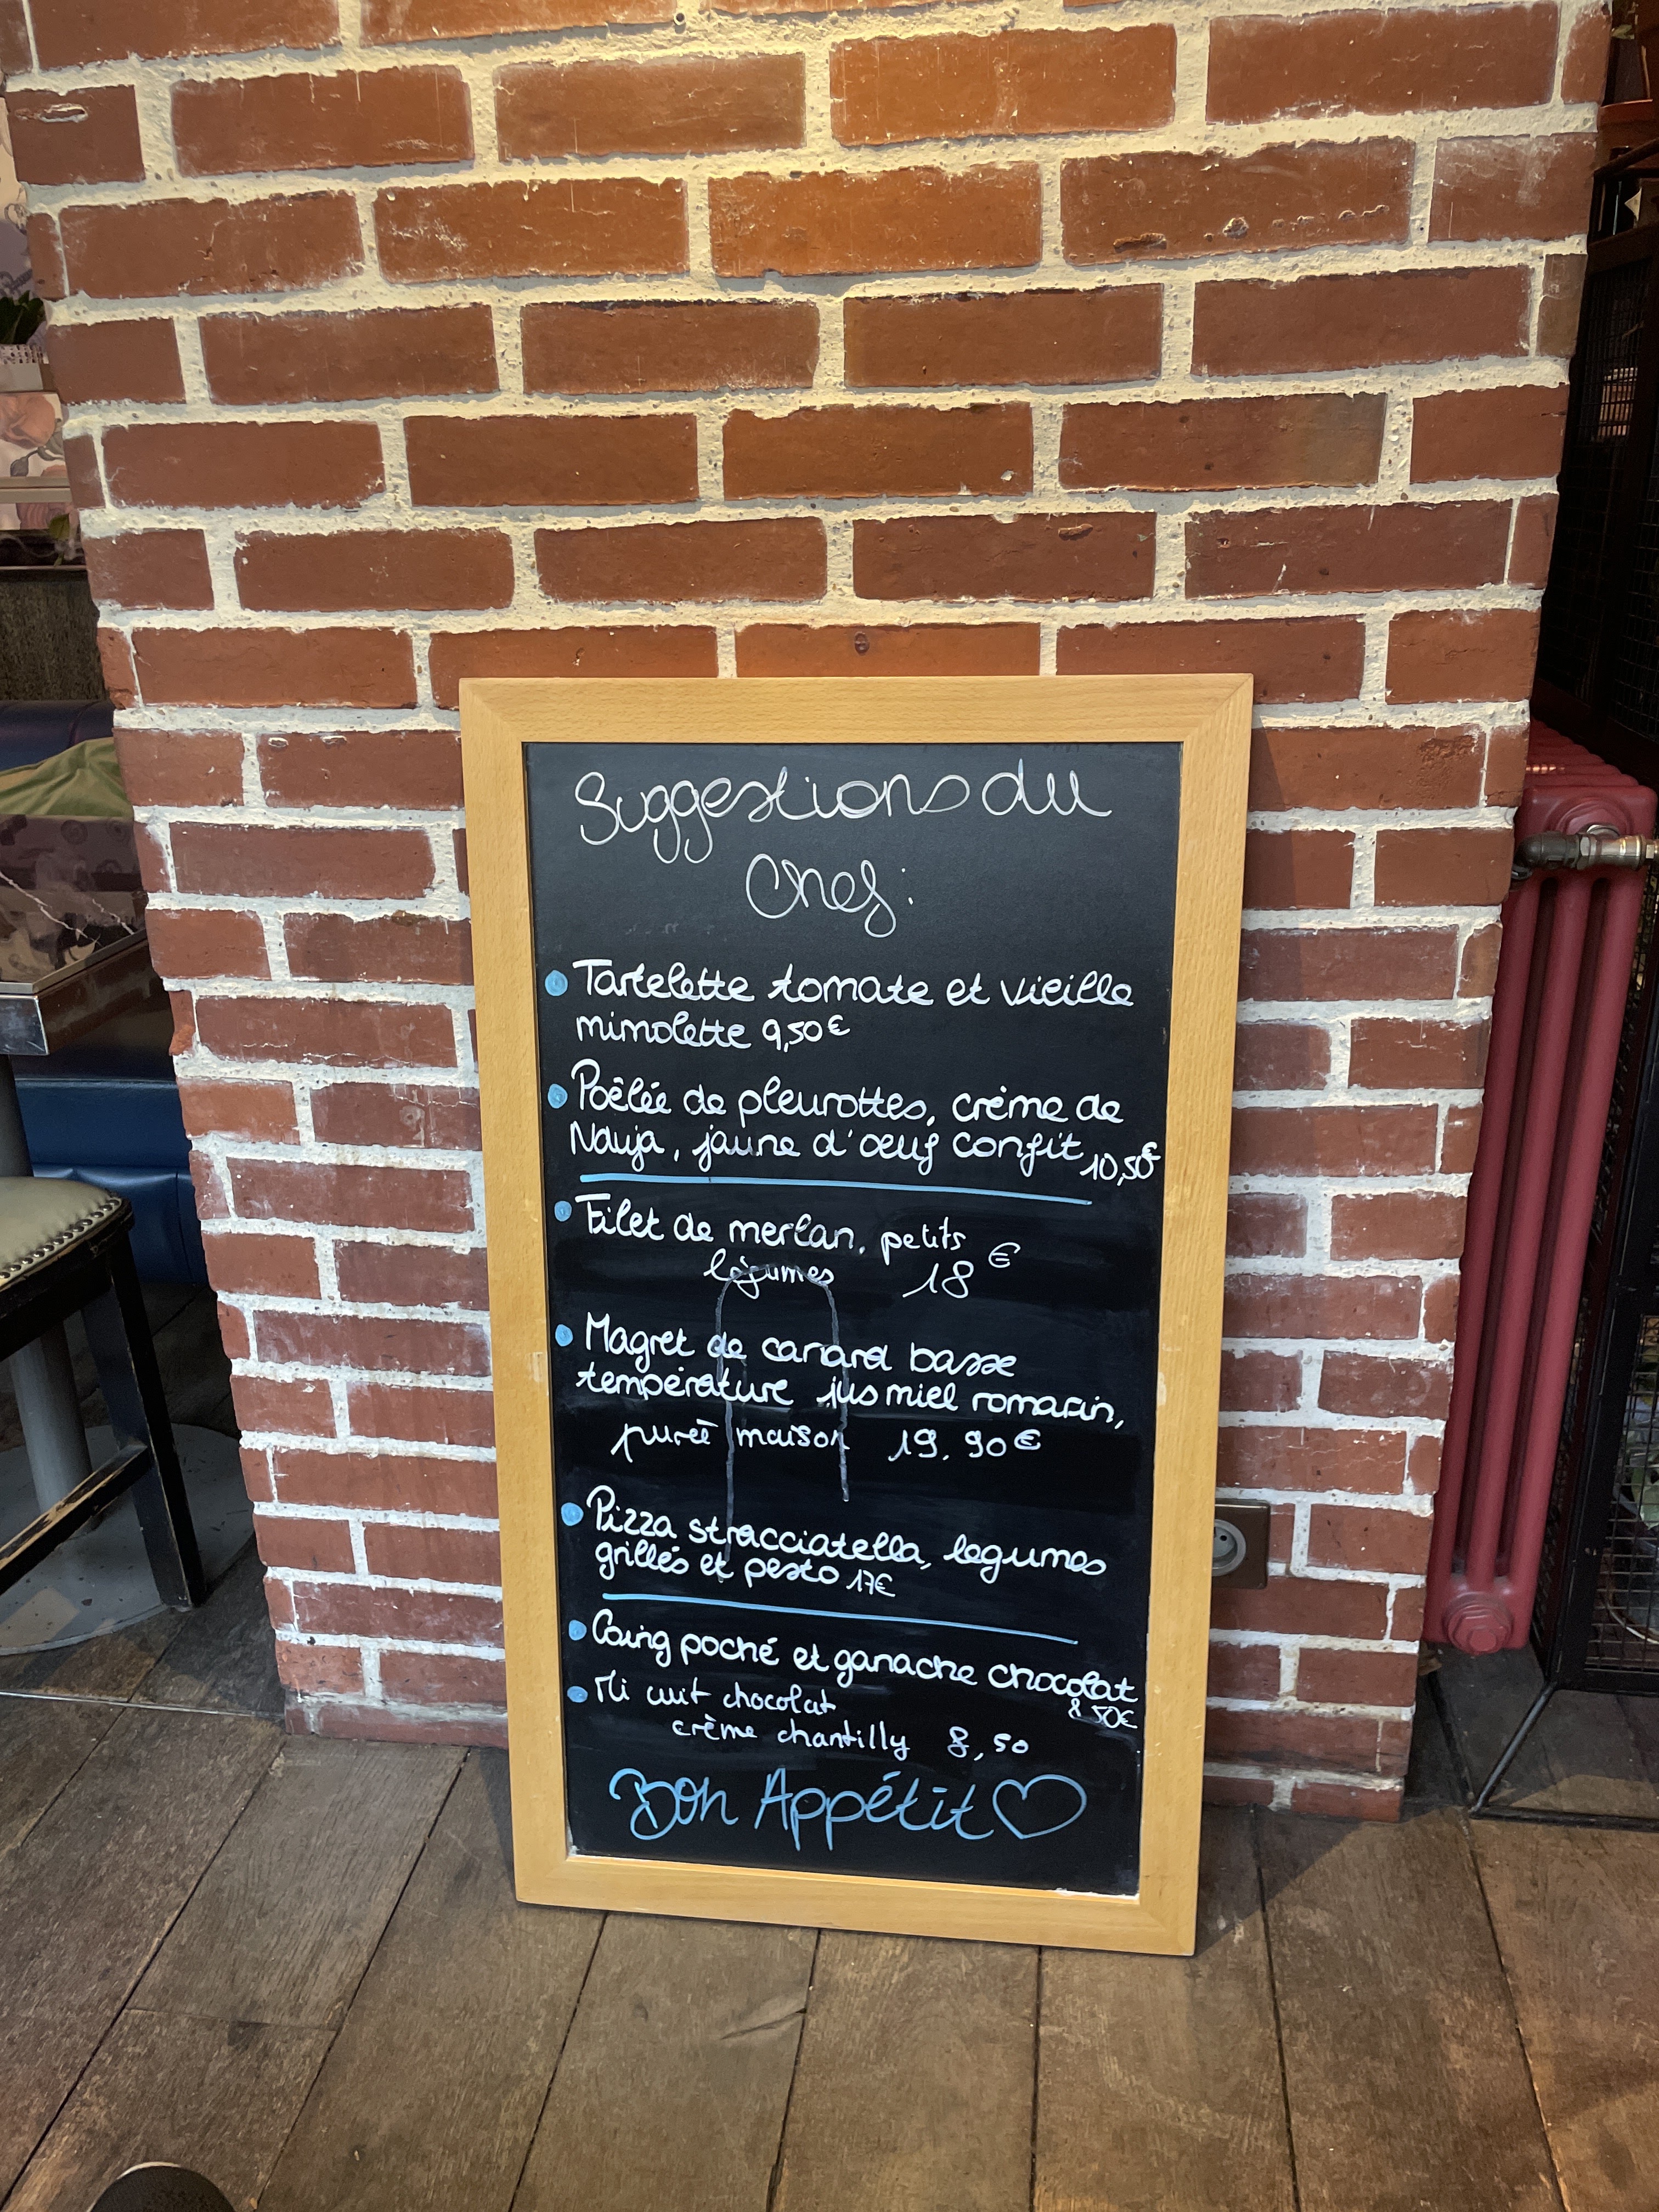 Suggestions du
Chef :
Tartelette tomate et vieille
mimolette 9,50€
Poêlée de pleurottes, crème de
Nauja, jaune d'oeuf confit 10,50€
Filet de merlan, petits
légumes 18€
Magret de canard basse
température jus miel romarin,
purée maison 19.90€
Pizza stracciatella, legumes
grillés et pesto 17€
Coing poché et ganache chocolat
8,50€
Mi cuit chocolat
crème chantilly 8,50
Bon Appétit